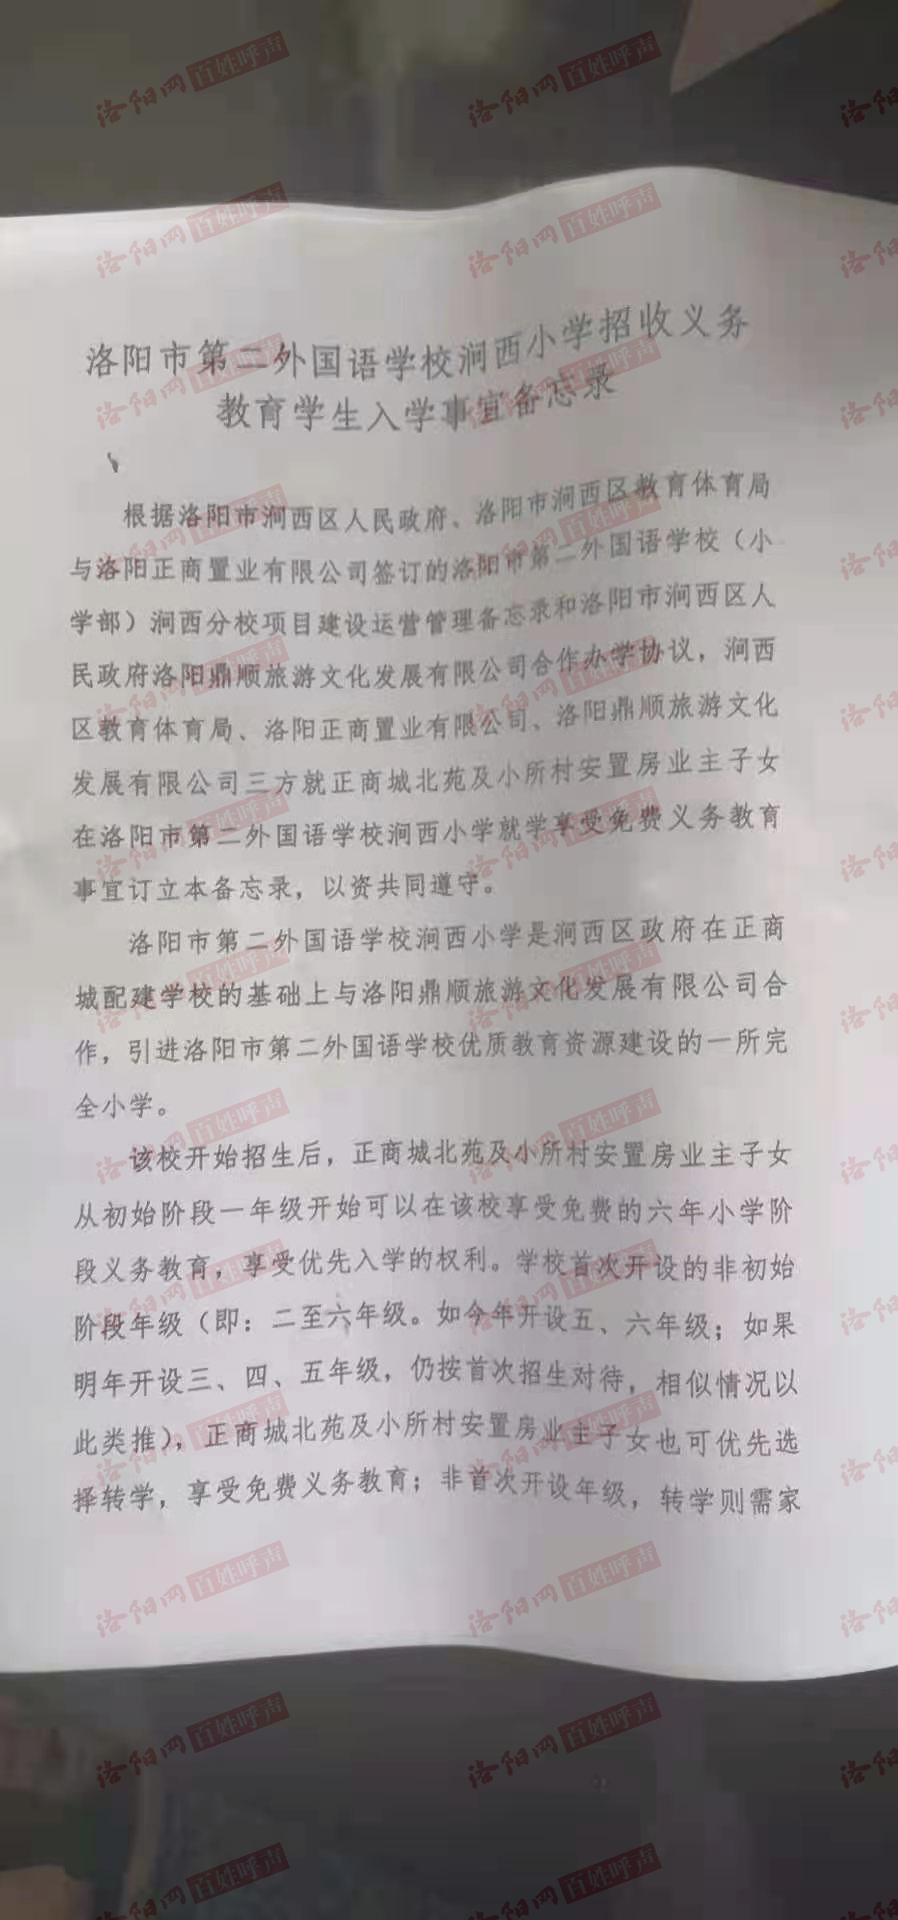 洛阳市第二外国语学校涧西小学招收义务
教育学生入学事宜备忘录
根据洛阳市涧西区人民政府、洛阳市涧西区教育体育局
与洛阳正商置业有限公司签订的洛阳市第二外国语学校（小
学部）涧西分校项目建设运营管理备忘录和洛阳市涧西区人
民政府洛阳鼎顺旅游文化发展有限公司合作办学协议，涧西
区教育体育局、洛阳正商置业有限公司、洛阳鼎顺旅游文化
发展有限公司三方就正商城北苑及小所村安置房业主子女
在洛阳市第二外国语学校涧西小学就学享受免费义务教育
事宜订立本备忘录，以资共同遵守。
洛阳市第二外国语学校涧西小学是涧西区政府在正商
城配建学校的基础上与洛阳鼎顺旅游文化发展有限公司合
作，引进洛阳市第二外国语学校优质教育资源建设的一所完
全小学。
该校开始招生后，正商城北苑及小所村安置房业主子女
从初始阶段一年级开始可以在该校享受免费的六年小学阶
段义务教育，享受优先入学的权利。学校首次开设的非初始
阶段年级（即：二至六年级。如今年开设五、六年级；如果
明年开设三、四、五年级，仍按首次招生对待，相似情况以
此类推），正商城北苑及小所村安置房业主子女也可优先选
择转学，享受免费义务教育；非首次开设年级，转学则需家
洛阳网 百姓呼声